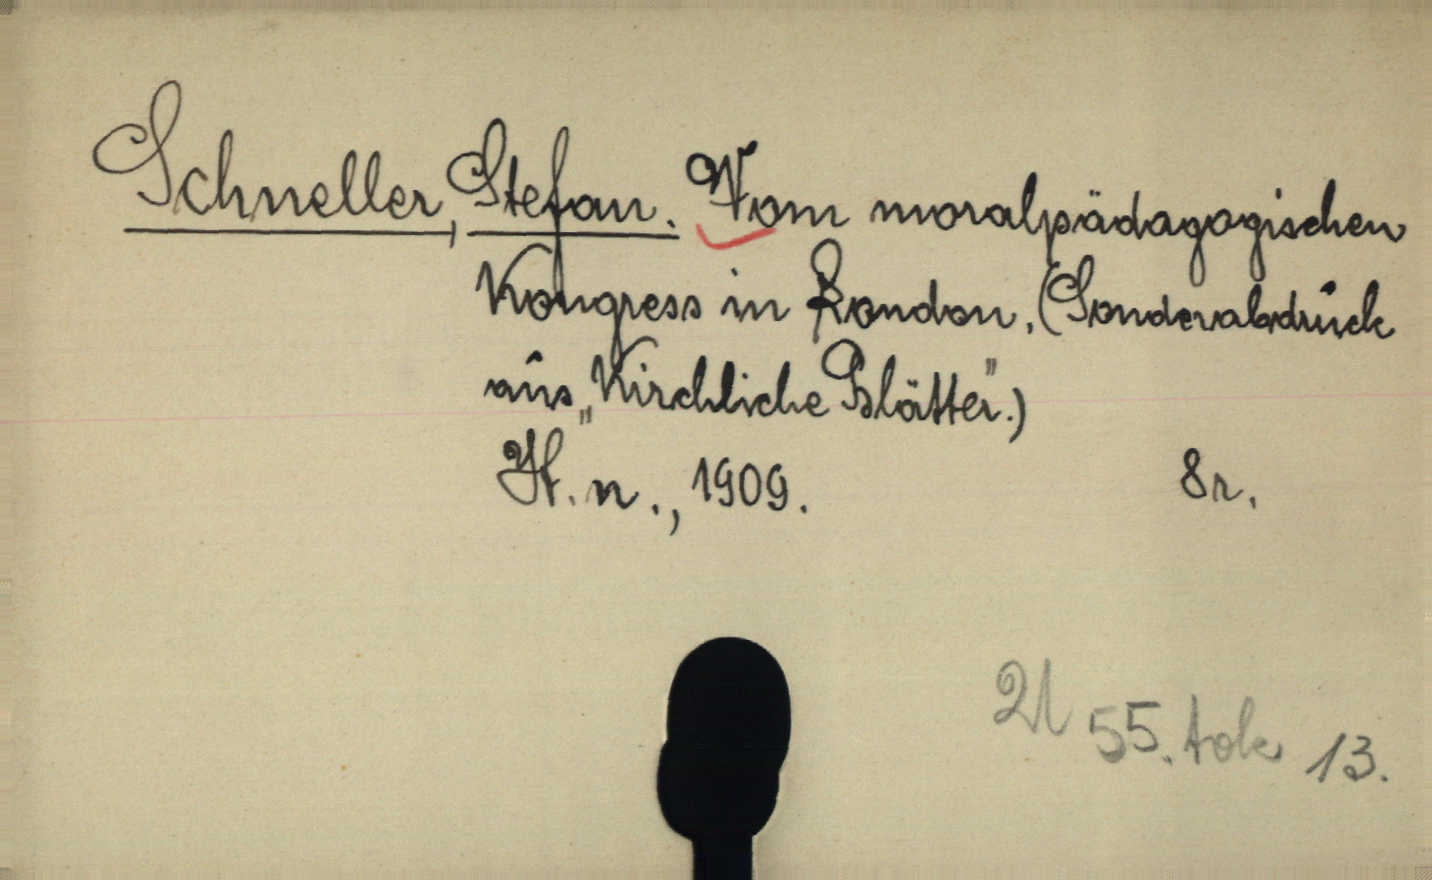 Schneller, Stefan. Vom moralpädagogischen
Kongress in London. (Sonderabdruck
aus „Kirchliche Blätter".)
H. n., 1909. 8r.
A 55. tok 13.